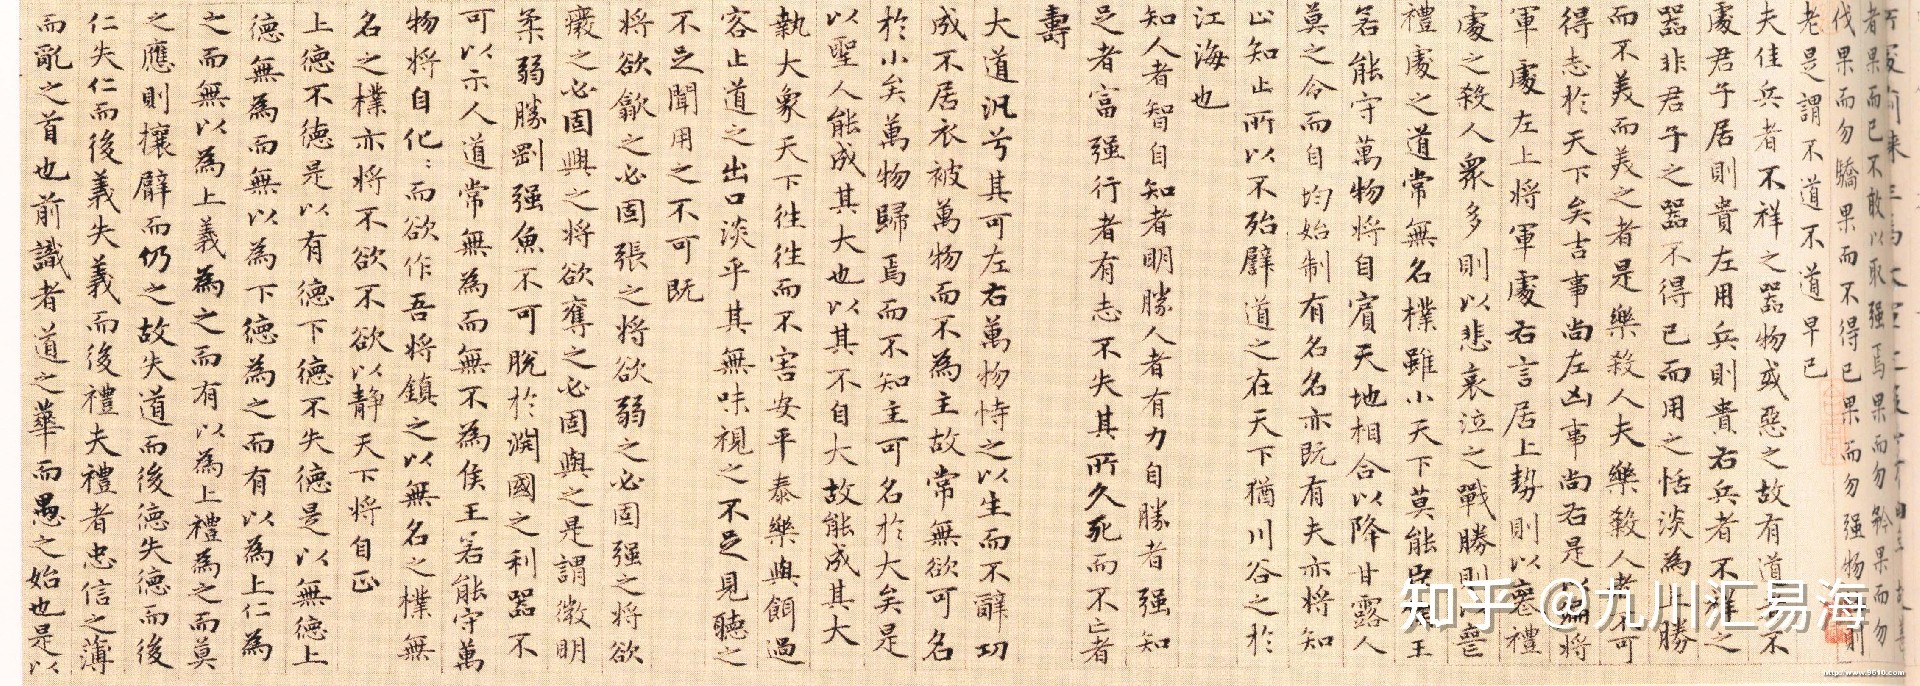 者果而已不敢以取强焉果而勿矜果而勿
伐果而勿驕果而不得已果而勿强物則
老是謂不道不道早已
夫佳兵者不祥之器物或惡之故有道不
處君子居則貴左用兵則貴右兵者不祥之
器非君子之器不得已而用之恬淡為上勝
而不美而美之者是樂殺人夫樂殺人者不可
得志於天下矣吉事尚左凶事尚右是以偏將
軍處左上將軍處右言居上勢則以喪禮
處之殺人衆多則以悲哀泣之戰勝則以喪
禮處之道常無名樸雖小天下莫能臣王
若能守萬物將自賓天地相合以降甘露人
莫之令而自均始制有名名亦既有夫亦將知
止知止所以不殆譬道之在天下猶川谷之於
江海也
知人者智自知者明勝人者有力自勝者强知
足者富强行者有志不失其所久死而不亡者
壽
大道汎兮其可左右萬物恃之以生而不辭功
成不居衣被萬物而不為主故常無欲可名
於小矣萬物歸焉而不知主可名於大矣是
以聖人能成其大也以其不自大故能成其大
執大象天下往往而不害安平泰樂與餌過
客止道之出口淡乎其無味視之不足見聽之
不足聞用之不可既
將欲歙之必固張之將欲弱之必固强之將欲
癈之必固興之將欲奪之必固與之是謂微明
柔弱勝剛强魚不可脫於淵國之利器不
可以示人道常無為而無不為侯王若能守萬
物將自化:而欲作吾將鎮之以無名之樸無
名之樸亦將不欲不欲以靜天下將自正
上德不德是以有德下德不失德是以無德上
德無為而無以為下德為之而有以為上仁為
之而無以為上義為之而有以為上禮為之而莫
之應則攘臂而仍之故失道而後德失德而後
仁失仁而後義失義而後禮夫禮者忠信之薄
而亂之首也前識者道之華而愚之始也是以
知乎 @九川汇易海
http://www.9610.com